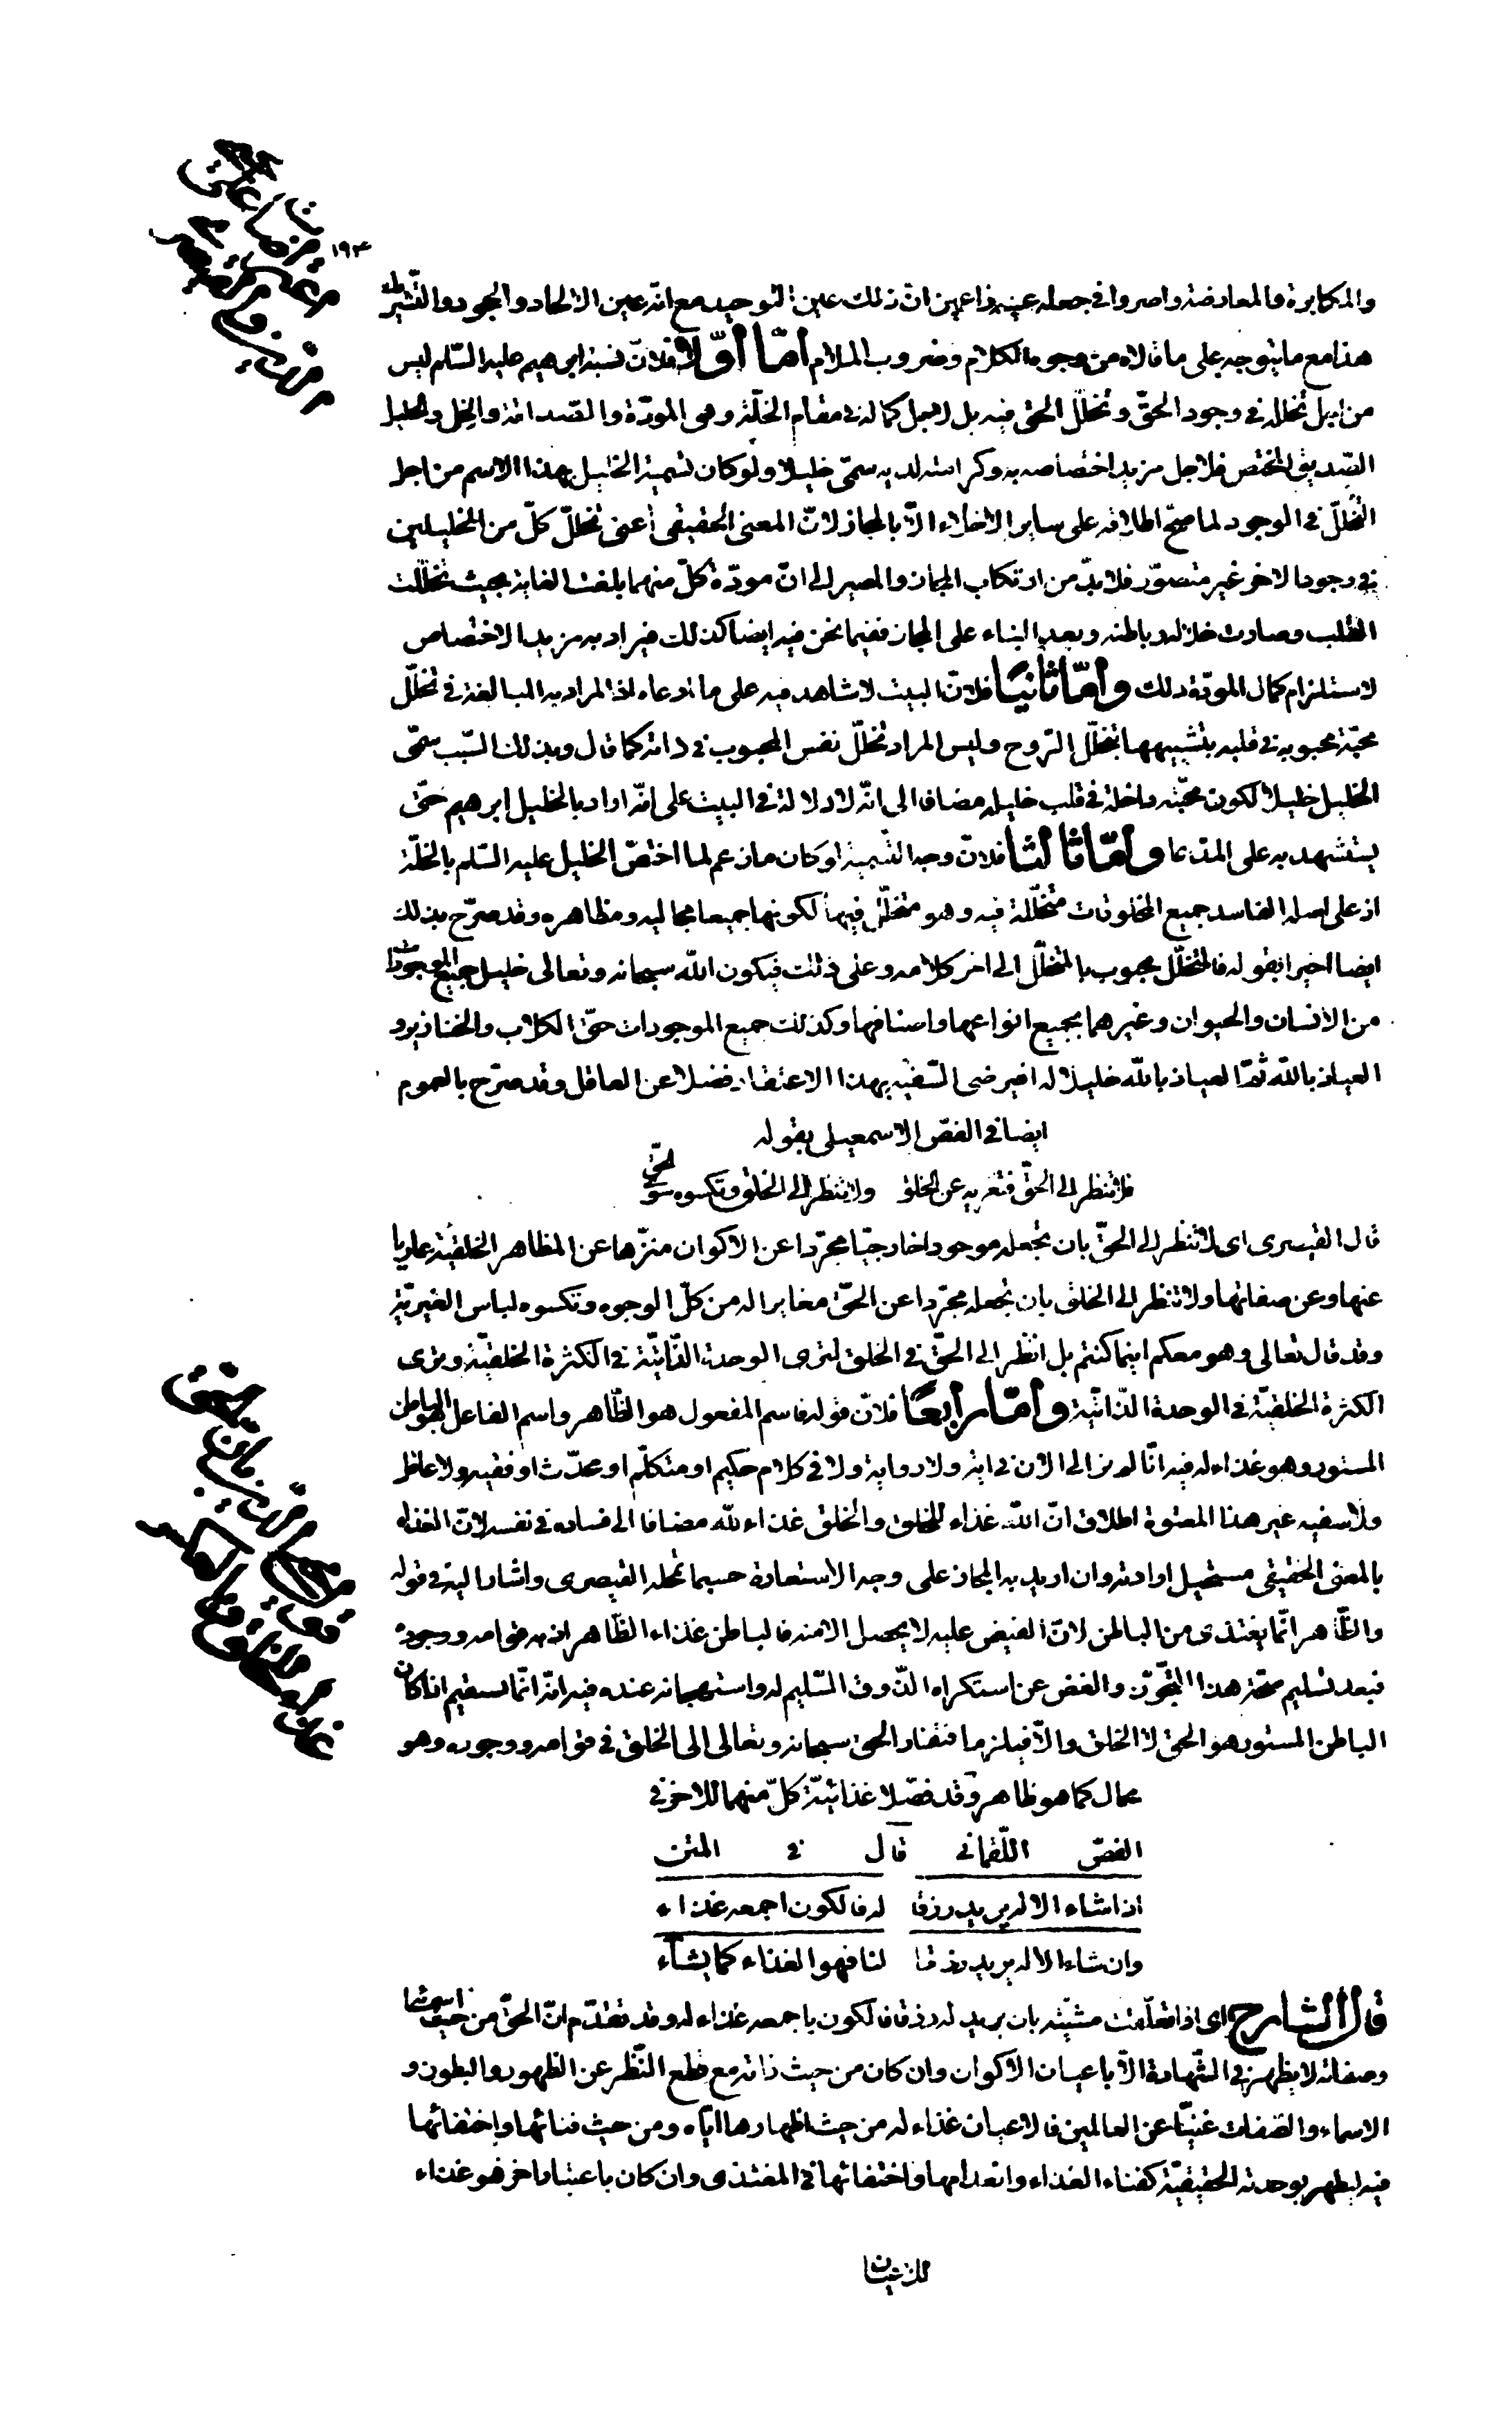 ١٩٣
والمكابرة والمعارضة واصروا في جعله عينه زاعمين انّ ذلك عين التوحيد مع انّه عين الالحاد والجحود والتشريك
هذا مع ما يتوجه على ما قالاه من وجوه الكلام وضروب الملام أمّا أوّلا فلانّ نسبة ابرهيم عليه السّلم ليس
من اجل تخلله في وجود الحقّ وتخلّل الحق فيه بل لاجل كماله في مقام الخلّة وهي المودّة والصداقة والخل والخليل
الصّديق المختص فلاجل مزيد اختصاصه به وكرامته لديه سمّى خليلا ولو كان تسمية الخليل بهذا الاسم من اجل
التخلّل في الوجود لما صحّ اطلاقه على ساير الاخلاء الّا بالمجاز لانّ المعنى الحقيقى أعنى تخلّل كلّ من الخليلين
في وجود الاخر غير متصوّر فلا بدّ من ارتكاب المجاز والمصير الى انّ مودّة كلّ منهما بلغت الغاية بحيث تخلّلت
القلب وصارت خلاله وباطنه وبعد البناء على المجاز ففيما نحن فيه ايضا كذلك فيراد به مزيد الاختصاص
لاستلزام كمال المودّة ذلك وأمّا ثانيًا فلانّ البيت لا شاهد فيه على ما ادعاه اذ المراد به المبالغة في تخلّل
محبّة محبوبه في قلبه بتشبيهها بتخلّل الرّوح وليس المراد تخلّل نفس المحبوب في ذاته كما قال وبذلك السّبب سمّى
الخليل خليلا لكون محبّته داخلة في قلب خليله مضافا الى انّه لا دلالة في البيت على انّه اراد بالخليل ابرهيم حتّى
يستشهد به على المدّعا وأمّا ثالثا فلانّ وجه التّسمية لو كان ما زعم لما اختصّ الخليل عليه السّلم بالخلّة
اذ على اصله الفاسد جميع المخلوقات متخلّلة فيه وهو متخلّل فيها لكونها جميعا مجاليه ومظاهره وقد صرّح بذلك
ايضا اخيرا بقوله فالمتخلّل محجوب بالمتخلّل الى اخر كلامه وعلى ذلك فيكون اللّه سبحانه وتعالى خليل جميع الموجودات
من الانسان والحيوان وغيرهما بجميع انواعها واصنافها وكذلك جميع الموجودات حتّى الكلاب والخنازير و
العياذ باللّه ثمّ العياذ باللّه خليلا له افيرضى السّفيه بهذا الاعتقاد فضلا عن العاقل وقد صرّح بالعموم
ايضا في الفصّ الاسمعيلى بقوله
فلا تنظر الى الحقّ فتعريه عن الخلق ولا تنظر الى الخلق وتكسوه سوى الحقّ
قال القيصرى اى لا تنظر الى الحقّ بان تجعله موجودا خارجيّا مجرّدا عن الاكوان منزّها عن المظاهر الخلقيّة عاريا
عنها وعن صفاتها ولا تنظر الى الخلق بان تجعله مجرّدا عن الحقّ مغايرا له من كلّ الوجوه وتكسوه لباس الغيريّة
وقد قال تعالى وهو معكم اينما كنتم بل انظر الى الحقّ في الخلق لترى الوحدة الذّاتيّة في الكثرة الخلقيّة وترى
الكثرة الخلقيّة في الوحدة الذّاتيّة وأمّا رابعًا فلانّ قوله فاسم المفعول هو الظّاهر واسم الفاعل هو الباطن
المستور وهو غذاء له فيه انّا لم نر الى الان في اية ولا رواية ولا في كلام حكيم او متكلّم او محدّث او فقيه ولا عاقل
ولا سفيه غير هذا المعتوه اطلاق انّ اللّه غذاء للخلق والخلق غذاء للّه مضافا الى فساده في نفسه لانّ الغذاء
بالمعنى الحقيقى مستحيل ارادته وان اريد به المجاز على وجه الاستعارة حسبما تمحّله القيصرى واشار اليه في قوله
والظّاهر انّما يغتذى من الباطن لانّ الفيض عليه لا يحصل الا منه فالباطن غذاء الظّاهر اذ به قوامه ووجوده
فبعد تسليم صحّة هذا التّجوّز والغض عن استكراه الذّوق السّليم له واستهجانه عنده فيه انّه انّما يستقيم اذا كان
الباطن المستور هو الحق لا الخلق والّا فيلزم افتقار الحق سبحانه وتعالى الى الخلق في قوامه ووجوده وهو
محال كما هو ظاهر وقد فصّلا غذائيّة كلّ منهما للاخر في
الفصّ اللّقمانى قال في المتن
اذا شاء الاله يريد رزقا له فالكون اجمعه غذاء
وان شاء الاله يريد رزقا لنا فهو الغذاء كما يشآء
قال الشّارح اى اذا تعلّقت مشيّته بان يريد له رزقا فالكون باجمعه غذاء له وقد تقدّم انّ الحقّ من حيث اسمائه
وصفاته لا يظهر في الشّهادة الّا باعيان الاكوان وان كان من حيث ذاته مع قطع النّظر عن الظهور والبطون و
الاسماء والصّفات غنيّا عن العالمين فالاعيان غذاء له من حيث اظهارها ايّاه ومن حيث فنائها واختفائها
فيه ليظهر بوحدته الحقيقيّة كفناء الغذاء وانعدامها واختفائها في المغتذى وان كان باعتبار اخر هو غذاء
للاعيان